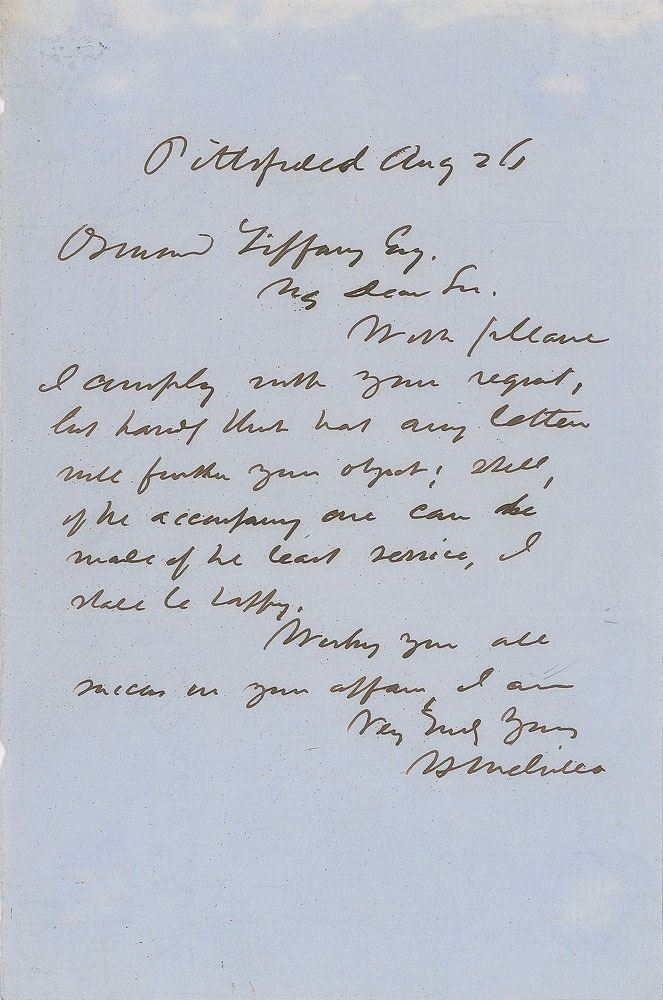 Pittsfield Aug 26
Osmond Tiffany Esq.
My Dear Sir.
With pleasure
I comply with your request,
but hardly think that any letter
will further your object; still,
if the accompanying one can be
made of the least service, I
shall be happy.
Wishing you all
success in your affair, I am
Very Truly Yours
H Melville